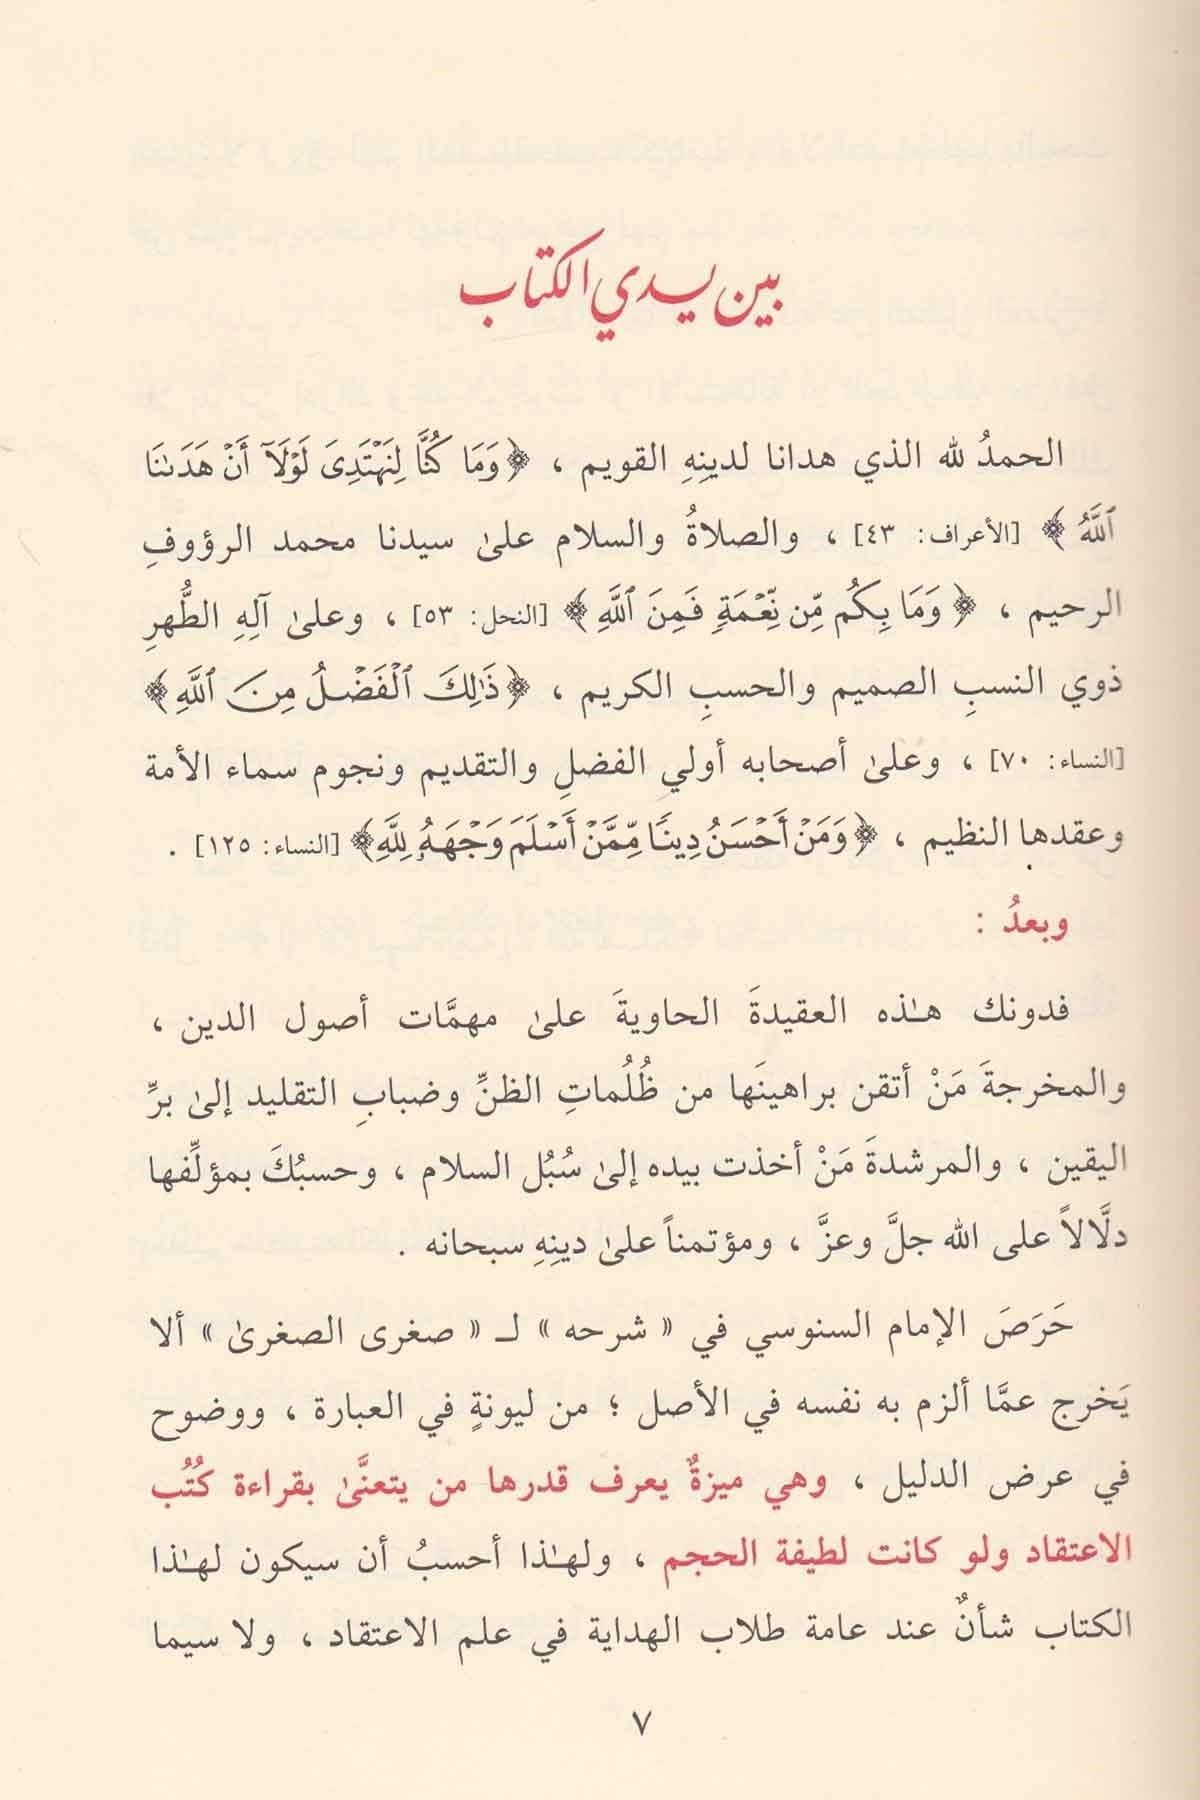 بين يدي الكتاب
الحمدُ لله الذي هدانا لدينِهِ القويم ، ﴿وَمَا كُنَّا لِنَهْتَدِىَ لَوْلَآ أَنْ هَدَىٰنَا
ٱللَّهُ﴾ [الأعراف: ٤٣] ، والصلاةُ والسلام علىٰ سيدنا محمد الرؤوفِ
الرحيم ، ﴿وَمَا بِكُم مِّن نِّعْمَةٍ فَمِنَ ٱللَّهِ﴾ [النحل: ٥٣] ، وعلىٰ آلِهِ الطُّهرِ
ذوي النسبِ الصميم والحسبِ الكريم ، ﴿ذَٰلِكَ ٱلْفَضْلُ مِنَ ٱللَّهِ﴾
[النساء: ٧٠] ، وعلىٰ أصحابه أولي الفضلِ والتقديم ونجوم سماء الأمة
وعقدها النظيم ، ﴿وَمَنْ أَحْسَنُ دِينًا مِّمَّنْ أَسْلَمَ وَجْهَهُۥ لِلَّهِ﴾ [النساء: ١٢٥] .
وبعدُ :
فدونك هـٰذه العقيدةَ الحاويةَ علىٰ مهمَّات أصول الدين ،
والمخرجةَ مَنْ أتقن براهينَها من ظُلُماتِ الظنِّ وضبابِ التقليد إلىٰ برِّ
اليقين ، والمرشدةَ مَنْ أخذت بيده إلىٰ سُبُل السلام ، وحسبُكَ بمؤلِّفها
دلَّالاً على الله جلَّ وعزَّ ، ومؤتمناً علىٰ دينِهِ سبحانه .
حَرَصَ الإمام السنوسي في « شرحه » لـ « صغرى الصغرىٰ » ألا
يَخرج عمَّا ألزم به نفسه في الأصل ؛ من ليونةٍ في العبارة ، ووضوح
في عرض الدليل ، وهي ميزةٌ يعرف قدرها من يتعنَّىٰ بقراءة كُتُب
الاعتقاد ولو كانت لطيفة الحجم ، ولهـٰذا أحسبُ أن سيكون لهـٰذا
الكتاب شأنٌ عند عامة طلاب الهداية في علم الاعتقاد ، ولا سيما
٧